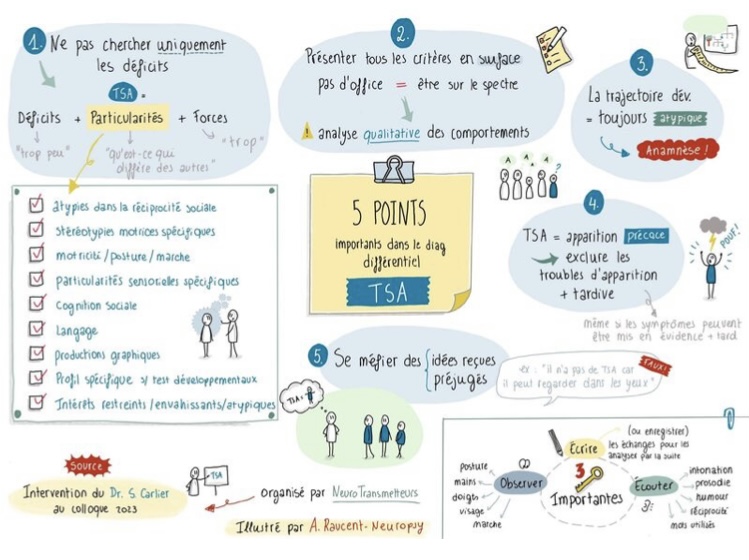 1. Ne pas chercher uniquement
les déficits
TSA =
Déficits + Particularités + Forces
"trop peu"
"qu'est-ce qui
diffère des autres"
"trop"
atypies dans la réciprocité sociale
Stéréotypies motrices spécifiques
motricité/posture/marche
particularités sensorielles spécifiques
Cognition sociale
Langage
Productions graphiques
Profil spécifique s/ test développementaux
Intérêts restreints/envahissants/atypiques
2.
Présenter tous les critères en surface
pas d'office = être sur le spectre
analyse qualitative des comportements
A A A A ?
3.
La trajectoire dév.
= toujours atypique
Anamnèse !
5 POINTS
importants dans le diag
différentiel
TSA
4.
TSA = apparition précoce
exclure les
troubles d'apparition
+ tardive
POUF!
même si les symptômes peuvent
être mis en évidence + tard
5. Se méfier des idées reçues
préjugés
ex : "il n'a pas de TSA car
il peut regarder dans les yeux"
FAUX!
TSA=
Source
Intervention du Dr. S. Carlier
au colloque 2023
TSA
Organisé par NeuroTransmetteurs
Illustré par A. Raucent-Neuropsy
3
Importantes
Observer
posture
mains
doigts
visage
marche
Écrire
(ou enregistrer)
les échanges pour les
analyser par la suite
Écouter
intonation
prosodie
humour
réciprocité
mots utilisés